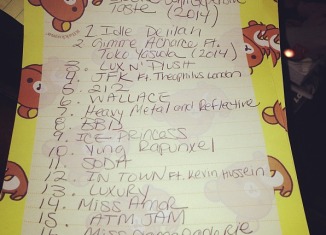 Taste (2014)
1 Idle Delilah
2 Gimme A Chance Ft.
Yoko Yasura (2014)
3.
4 JFK Ft. Theophilus London
5. 212
6. WALLACE
7. Heavy Metal and Reflective
8. BBD
9. ICE PRINCESS
10. Yung Rapunxel
11. SODA
12. IN TOWN Ft. Kevin Hussein
13. LUXURY
14. Miss Amor
15. ATM JAM
16. Miss